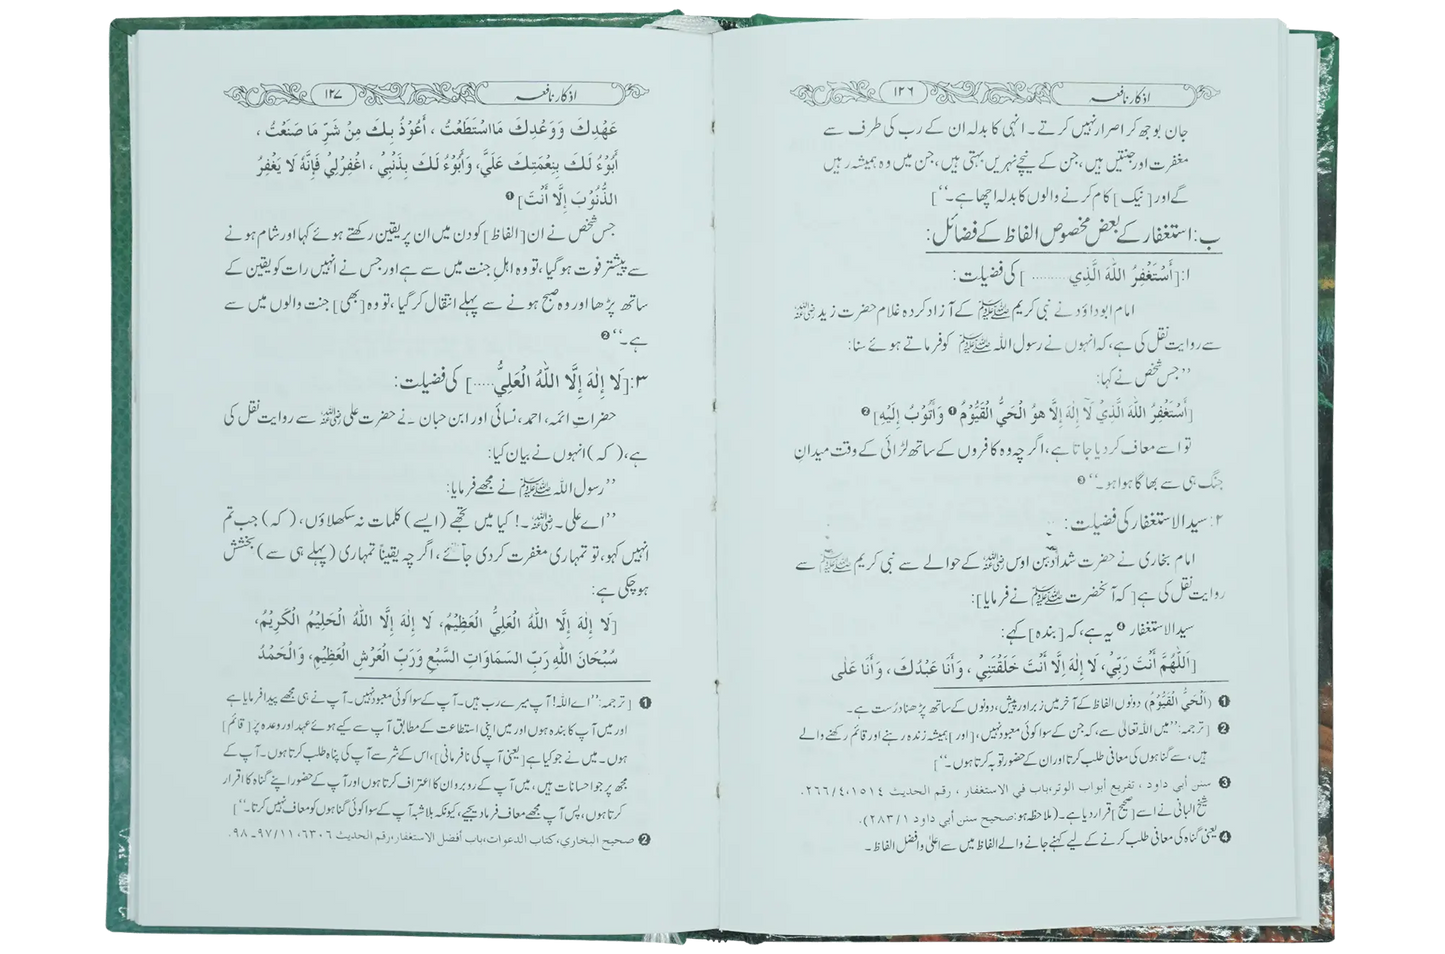 اذکار نافعہ
۱۲۶
جان بوجھ کر اصرار نہیں کرتے۔ انہی کا بدلہ ان کے رب کی طرف سے
مغفرت اور جنتیں ہیں، جن کے نیچے نہریں بہتی ہیں، جن میں وہ ہمیشہ رہیں
گے اور [نیک] کام کرنے والوں کا بدلہ اچھا ہے۔‘‘]
ب: استغفار کے بعض مخصوص الفاظ کے فضائل:
۱:[أَسْتَغْفِرُ اللّٰهَ الَّذِي ..........] کی فضیلت:
امام ابوداؤد نے نبی کریم ﷺ کے آزاد کردہ غلام حضرت زید رضی اللہ عنہ
سے روایت نقل کی ہے، کہ انہوں نے رسول اللہ ﷺ کو فرماتے ہوئے سنا:
’’جس شخص نے کہا:
[أَسْتَغْفِرُ اللّٰهَ الَّذِيْ لَآ إِلٰهَ إِلَّا هُوَ الْحَيُّ الْقَيُّوْمُ ❶ وَأَتُوْبُ إِلَيْهِ] ❷
تو اسے معاف کر دیا جاتا ہے، اگرچہ وہ کافروں کے ساتھ لڑائی کے وقت میدانِ
جنگ ہی سے بھاگا ہوا ہو۔‘‘ ❸
۲: سید الاستغفار کی فضیلت:
امام بخاری نے حضرت شداد بن اوس رضی اللہ عنہ کے حوالے سے نبی کریم ﷺ سے
روایت نقل کی ہے [کہ آنحضرت ﷺ نے فرمایا]:
سید الاستغفار ❹ یہ ہے، کہ [بندہ] کہے:
[اَللّٰهُمَّ أَنْتَ رَبِّيْ، لَا إِلٰهَ إِلَّا أَنْتَ خَلَقْتَنِيْ، وَأَنَا عَبْدُكَ، وَأَنَا عَلٰى
❶ (الْحَيُّ الْقَيُّوْمُ) دونوں الفاظ کے آخر میں زبر اور پیش، دونوں کے ساتھ پڑھنا درست ہے۔
❷ [ترجمہ: ’’میں اللہ تعالیٰ سے، کہ جن کے سوا کوئی معبود نہیں، [اور] ہمیشہ زندہ رہنے اور قائم رکھنے والے
ہیں، سے گناہوں کی معافی طلب کرتا اور ان کے حضور توبہ کرتا ہوں۔‘‘]
❸ سنن أبي داود ، تفريع أبواب الوتر، باب في الاستغفار ، رقم الحديث ١٥١٤، ٤/٢٦٦.
شیخ البانی نے اسے [صحیح] قرار دیا ہے۔ (ملاحظہ ہو: صحيح سنن أبي داود ١/٢٨٣).
❹ یعنی گناہ کی معافی طلب کرنے کے لیے کہنے جانے والے الفاظ میں سے اعلیٰ و افضل الفاظ۔
اذکار نافعہ
۱۲۷
عَهْدِكَ وَوَعْدِكَ مَا اسْتَطَعْتُ ، أَعُوْذُ بِكَ مِنْ شَرِّ مَا صَنَعْتُ ،
أَبُوْءُ لَكَ بِنِعْمَتِكَ عَلَيَّ، وَأَبُوْءُ لَكَ بِذَنْبِيْ ، اغْفِرْلِيْ فَإِنَّهُ لَا يَغْفِرُ
الذُّنُوْبَ إِلَّا أَنْتَ] ❶
جس شخص نے ان [الفاظ] کو دن میں ان پر یقین رکھتے ہوئے کہا اور شام ہونے
سے پیشتر فوت ہو گیا، تو وہ اہلِ جنت میں سے ہے اور جس نے انہیں رات کو یقین کے
ساتھ پڑھا اور وہ صبح ہونے سے پہلے انتقال کر گیا، تو وہ [بھی] جنت والوں میں سے
ہے۔‘‘ ❷
۳:[لَا إِلٰهَ إِلَّا اللّٰهُ الْعَلِيُّ.....] کی فضیلت:
حضراتِ ائمہ، احمد، نسائی اور ابن حبان نے حضرت علی رضی اللہ عنہ سے روایت نقل کی
ہے، (کہ) انہوں نے بیان کیا:
’’رسول اللہ ﷺ نے مجھے فرمایا:
’’اے علی۔ رضی اللہ عنہ۔! کیا میں تجھے (ایسے) کلمات نہ سکھلاؤں، (کہ) جب تم
انہیں کہو، تو تمہاری مغفرت کر دی جائے، اگرچہ یقیناً تمہاری (پہلے ہی سے) بخشش
ہو چکی ہے:
[لَا إِلٰهَ إِلَّا اللّٰهُ الْعَلِيُّ الْعَظِيْمُ، لَا إِلٰهَ إِلَّا اللّٰهُ الْحَلِيْمُ الْكَرِيْمُ،
سُبْحَانَ اللّٰهِ رَبِّ السَّمَاوَاتِ السَّبْعِ وَرَبِّ الْعَرْشِ الْعَظِيْمِ، وَالْحَمْدُ
❶ [ترجمہ: ’’اے اللہ! آپ میرے رب ہیں۔ آپ کے سوا کوئی معبود نہیں۔ آپ نے ہی مجھے پیدا فرمایا ہے
اور میں آپ کا بندہ ہوں اور میں اپنی استطاعت کے مطابق آپ سے کیے ہوئے عہد اور وعدہ پر [قائم]
ہوں۔ میں نے جو کیا ہے [یعنی آپ کی نافرمانی]، اس کے شر سے آپ کی پناہ طلب کرتا ہوں۔ آپ کے
مجھ پر جو احسانات ہیں، میں آپ کے روبرو ان کا اعتراف کرتا ہوں اور آپ کے حضور اپنے گناہ کا اقرار
کرتا ہوں، پس آپ مجھے معاف فرما دیجیے، کیونکہ بلاشبہ آپ کے سوا کوئی گناہوں کو معاف نہیں کرتا۔‘‘]
❷ صحيح البخاري، كتاب الدعوات، باب أفضل الاستغفار، رقم الحديث ٦٣٠٦، ١١/٩٧ـ٩٨.